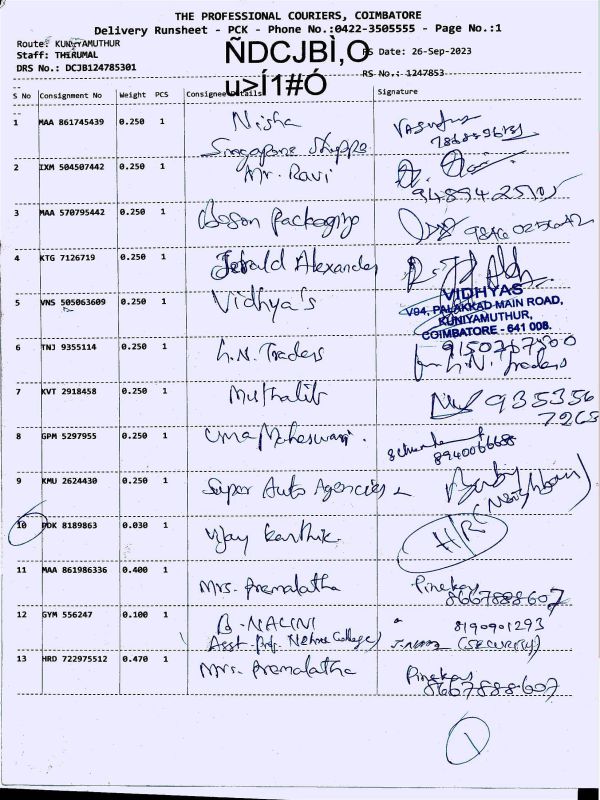 THE PROFESSIONAL COURIERS, COIMBATORE
Delivery Runsheet - PCK - Phone No.:0422-3505555 - Page No.:1
Route: KUNIYAMUTHUR
Staff: THIRUMAL
DRS No.: DCJB124785301
ÑDCJBÌ,O
u>Í1#Ó
Date: 26-Sep-2023
RS No.: 1247853
S No Consignment No Weight PCS Consignee Details Signature
1 MAA 861745439 0.250 1 Nisha
Singapore
2 IXM 504507442 0.250 1 Mr. Ravi
3 MAA 570795442 0.250 1 Packaging
4 KTG 7126719 0.250 1 Jerald Alexander
5 VNS 505063609 0.250 1 Vidhya's
VIDHYAS
V94, PALAKKAD MAIN ROAD,
KUNIYAMUTHUR,
COIMBATORE - 641 008.
6 TNJ 9355114 0.250 1 L.N. Traders
for L.N. Traders
7 KVT 2918458 0.250 1 Muthalib 935356
7268
8 GPM 5297955 0.250 1 Uma Maheswari.
8940066688
9 KMU 2624430 0.250 1 Super Auto Agencies
(Neighbour)
10 PDK 8189863 0.030 1 Vijay Karthik. H/R
11 MAA 861986336 0.400 1 Mrs. Premalatha
8667888607
12 GYM 556247 0.100 1 B. NALINI 8190901293
Asst. Prof. Nehru College) (SECURITY)
13 HRD 722975512 0.470 1 Mrs. Premalatha
8667888607
1